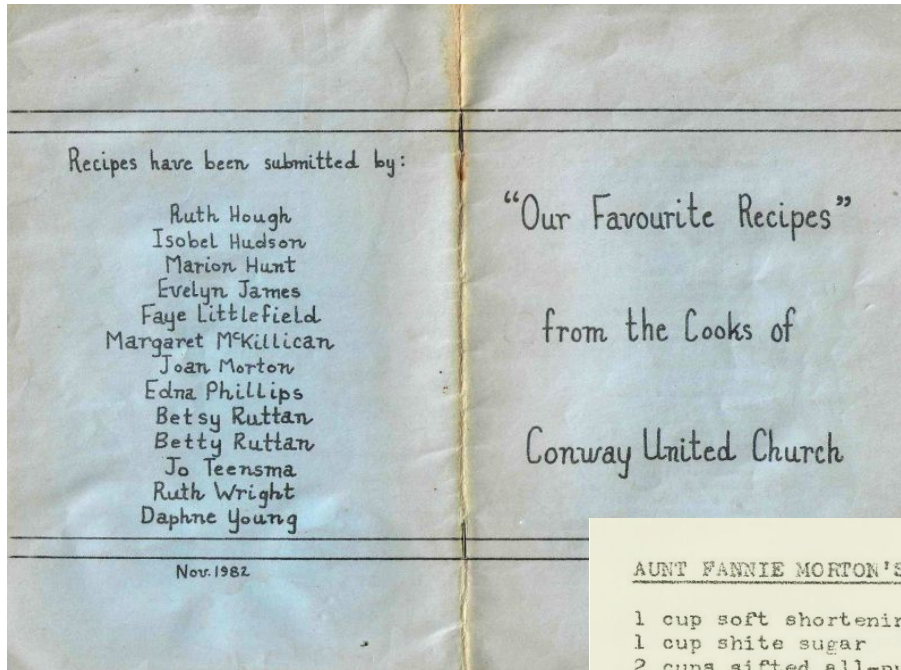 Recipes have been submitted by:
Ruth Hough
Isobel Hudson
Marion Hunt
Evelyn James
Faye Littlefield
Margaret McKillican
Joan Morton
Edna Phillips
Betsy Ruttan
Betty Ruttan
Jo Teensma
Ruth Wright
Daphne Young
Nov. 1982
“Our Favourite Recipes”
from the Cooks of
Conway United Church
AUNT FANNIE MORTON'S
1 cup soft
1 cup shite sugar
2 cups sifted